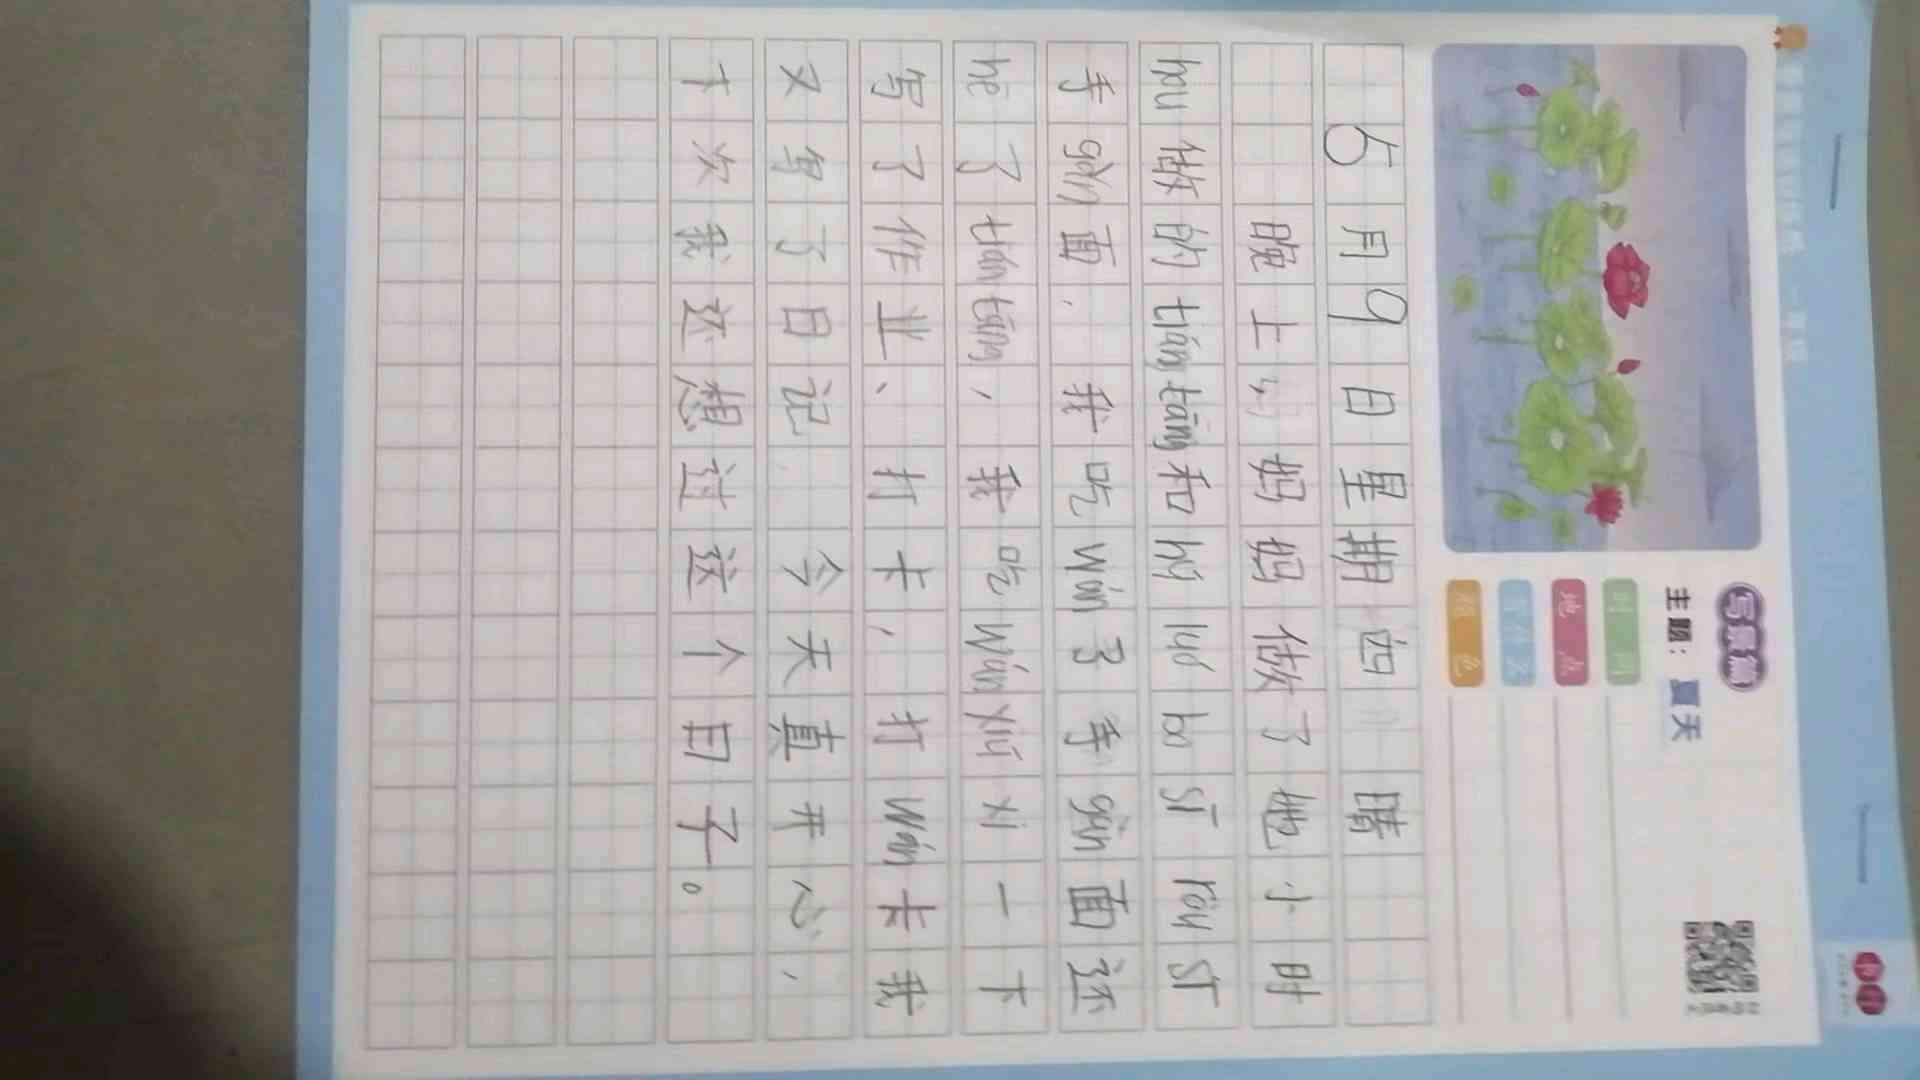 写景篇
主题：夏天
时间
地点
颜色
5月9日星期四 晴
晚上，妈妈做了她小时
hou做的tián tāng和hú luó bo sī ròu sī
手gǎn面，我吃wán了手gǎn面还
hē了tián tāng，我吃wán xiū xi一下
写了作业、打卡，打wán卡我
又写了日记 今天真开心，
下次我还想过这个日子。